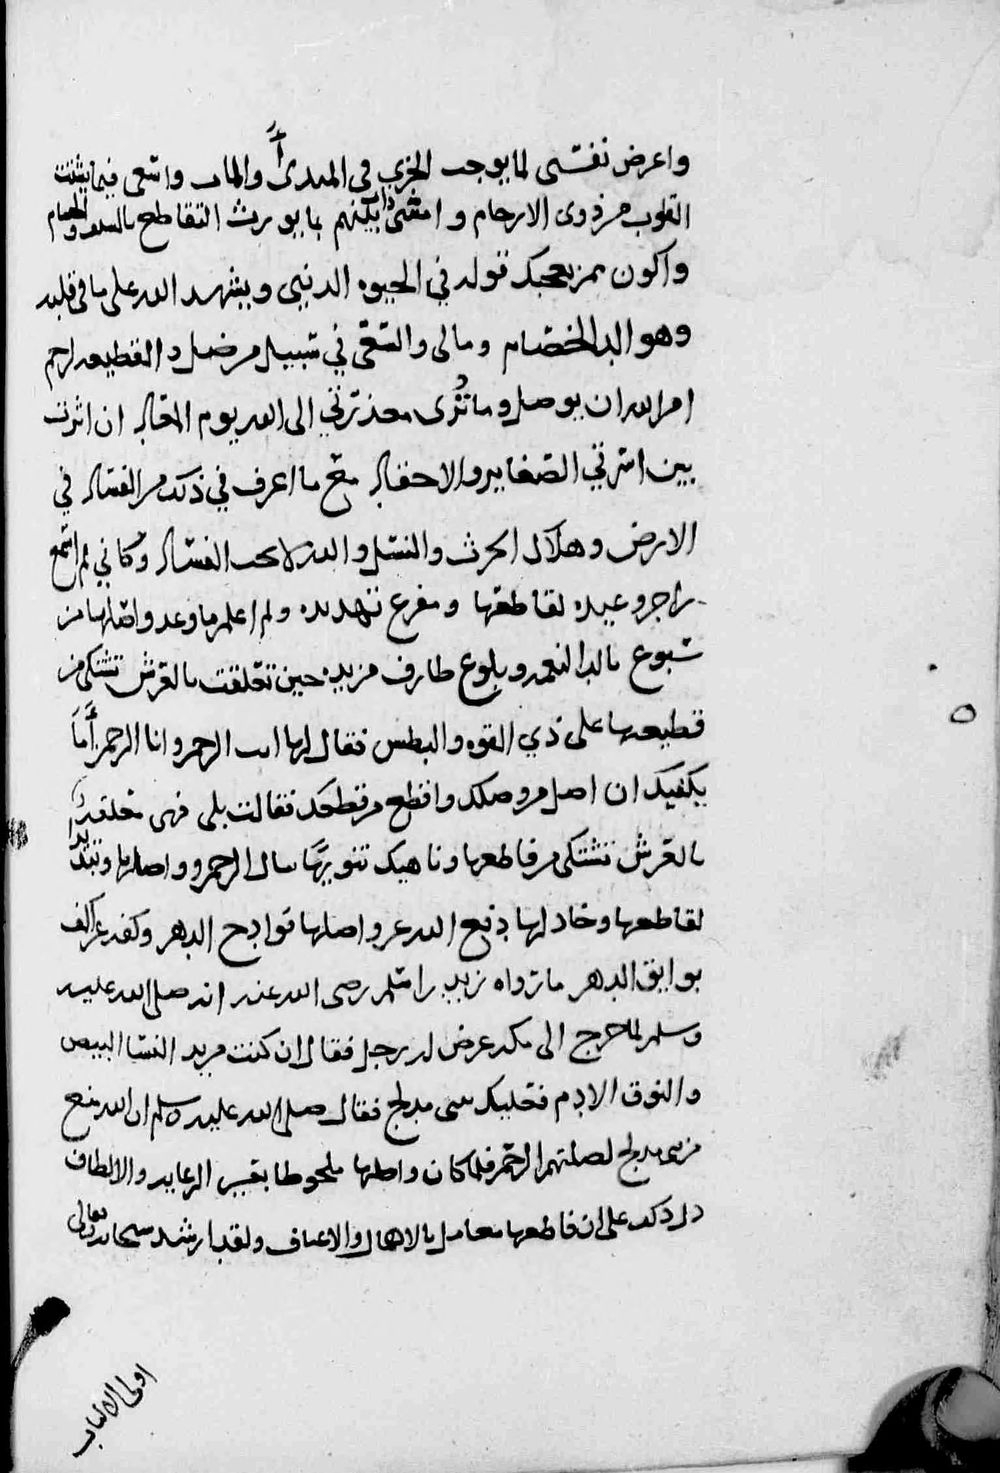 واعرض نفسي لما يوجب الخزي في المبدأ والماب واسعى فيما يشتت
القلوب من ذوى الارحام و امشى بينهم بما يورث التقاطع بالسلف والخصام
واكون ممن يعجبك قوله في الحيوه الدنيى ويشهد الله على ما في قلبه
وهو الد الخصام ومالى والسعى في سبيل من ضل د القطيعه لرحم
امر الله ان يوصل وما ترى معذرتي الى الله يوم المعاد ان اثرت
بين اسرتي الضغاين والاحقاد مع ما اعرف في ذلك من الفساد في
الارض وهلاك الحرث والنسل والله لا يحب الفساد وكاني لم اسمع
زاجر وعيده لقاطعها ومفزع تهديده ولم اعلم ما وعد واصلها من
سبوغ بالد النعمه وبلوغ طارف مزيد حين تعلقت بالعرش تشتكى من
قطيعتها على ذي القوه والبطش فقال لها انت الرحم وانا الرحمن أما
يكفيك ان اصل من وصلك واقطع من قطعك فقالت بلى فهى متعلقة
بالعرش تشتكى من قاطعها وناهيك تنويها بشان الرحم وواصلها وتنديدا
لقاطعها وخاذلها دفع الله عن واصلها قوادح الدهر وكفه عن الف
بوايق الدهر ما رواه زيد بن اسلم رضى الله عنه انه صلى الله عليه
وسلم لما خرج الى مكه عرض له رجل فقال ان كنت تريد النسا البيض
والنوق الادم فعليك ببنى مدلج فقال صلى الله عليه وسلم ان الله منع
من بنى مدلج لصلتهم الرحم فلما كان واصلها ملحوظا بعين الرعايه والالطاف
دل ذلك على ان قاطعها معامل بالاهمال والاعساف ولقد ارشد سبحانه وتعالى
اولى الالباب